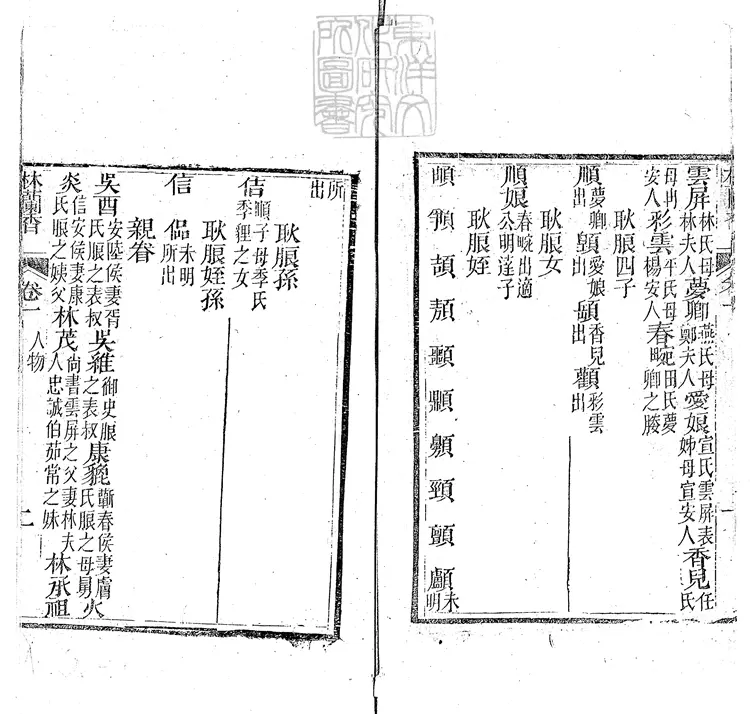 雲屏林氏母林夫人夢卿燕氏母鄭夫人愛娘宣氏雲屏表姊母宣安人香兒任氏
母冉安人彩雲平氏母楊安人春畹田氏夢卿之媵
耿朖四子
順夢卿出顗愛娘出香兒出顴彩雲出
耿朖女
順娘春畹出適公明達子
耿朖姪
頡顥頸顫顱未明
所出
耿朖孫
佶順子母季氏季狸之女
耿朖姪孫
信偘未明所出
親眷
吳酉安陸侯妻胥氏朖之表叔吳維御史朖之表叔康貔蘄春侯妻膚氏朖之母舅火
炎信安侯妻康氏朖之姨父林茂尚書雲屏之父妻林夫人忠誠伯茹常之妹林承祖
林蘭香 卷一 人物 二
東洋文化研究所圖書